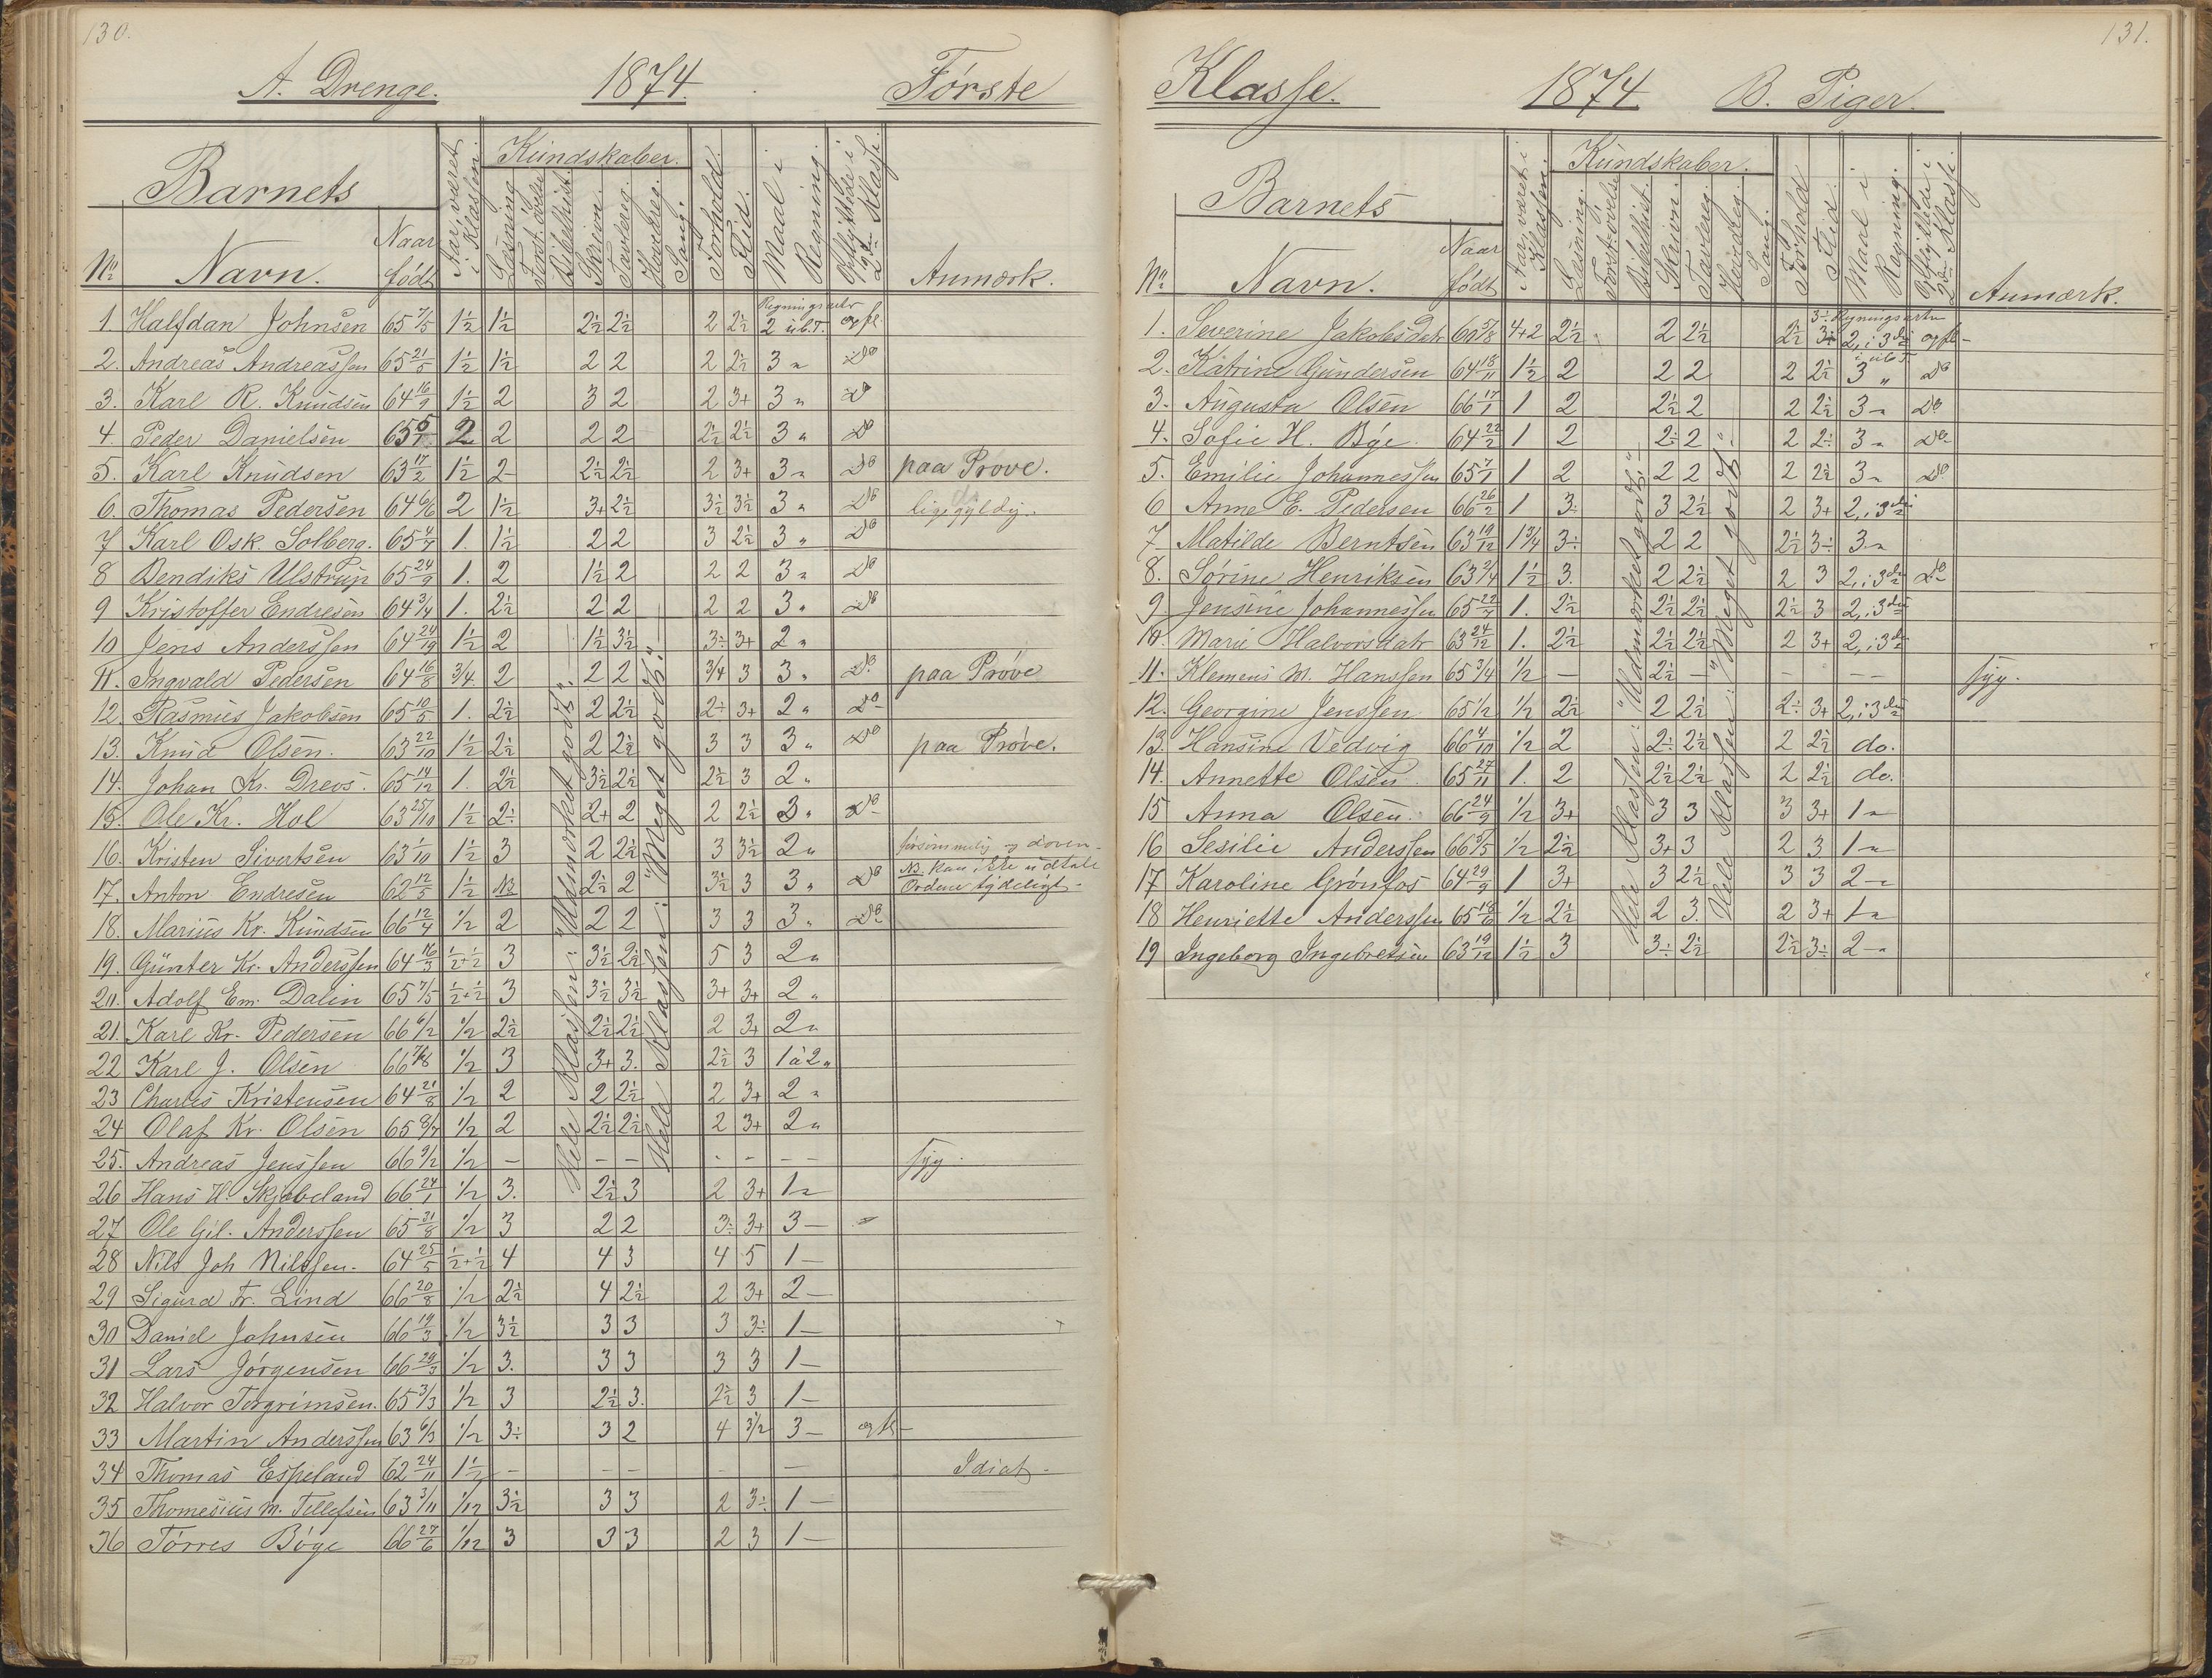 130.
A. Drenge. 1874. Første
Barnets
Aar været i Klassen.
Kundskaber.
Læsning
Forst.øvelse
Bibelhist.
Skrivn.
Tavlereg.
Hovedreg.
Sang.
Forhold.
Flid.
Maal i Regning.
Opflyttede i 2den Klasse.
Anmærk.
No Navn. Naar født
1 Halfdan Johnsen 65 7/5 1½ 1½ 2½ 2½ 2 2½ 2 opfl.
2. Andreas Andreassen 65 21/5 1½ 1½ 2 2 2 2½ 3 " do
3. Karl R. Knudsen 64 16/9 1½ 2 3 2 2 3+ 3 " do
4. Peder Danielsen 65 2 2 2 2 2½ 2½ 3 " do
5. Karl Knudsen 63 17/2 1½ 2- 2½ 2½ 2 3+ 3 " do paa Prøve.
6. Thomas Pedersen 64 6/6 2 1½ 3+ 2½ 3½ 3½ 3 " do ligegyldig.
7 Karl Osk. Solberg. 65 4/7 1. 1½ 2 2 3 2½ 3 " do
8 Bendiks Ulstrup 65 24/9 1. 2 1½ 2 2 2 3 " do
9 Kristoffer Endresen 64 3/4 1. 2½ 2 2 2 2 3 " do
10 Jens Anderssen 64 1½ 2 1½ 3½ 3÷ 3+ 2 "
11. Ingvald Pedersen 64 16/8 3/4 2 2 2 3/4 3 3 " do paa Prøve
12. Rasmus Jakobsen 65 10/5 1. 2½ 2 2½ 2÷ 3+ 2 " do
13. Knud Olsen. 63 22/10 1½ 2½ 2 2½ 3 3 3 " do paa Prøve.
14. Johan Kr. Drevs. 65 14/12 1. 2½ 3½ 2½ 2½ 3 2 "
15. Ole Kr. Hol 63 25/10 1½ 2÷ 2+ 2 2 2½ 3 " do
16. Kristen Sivertsen 63 1/10 1½ 3 2 2½ 3 3½ 2 " forsømmelig og doven
17. Anton Endresen 62 12/5 1½ NB 2½ 2 3½ 3 3 " do NB. kan ikke udtale Ordene tydeligt.
18. Marius Kr. Knudsen 66 12/4 ½ 2 2 2 3 3 3 " do
19. Günter Kr. Anderssen 64 16/3 ½+½ 3 3½ 2½ 5 3 2 "
20. Adolf Em. Dalin 65 7/5 ½+½ 3 3½ 3½ 3+ 3+ 2 "
21. Karl Kr. Pedersen 66 6/2 ½ 2½ 2½ 2½ 2 3+ 2 "
22 Karl J. Olsen 66 ½ 3 3+ 3. 2½ 3 1 à 2 "
23 Charles Kristensen 64 21/8 ½ 2 2 2½ 2 3+ 2 "
24 Olaf Kr. Olsen 65 8/7 ½ 2 2½ 2½ 2 3+ 2 "
25. Andreas Jenssen 66 9/2 ½ – – – – – – – syg.
26 Hans H. Skjæveland 66 24/1 ½ 3. 2½ 3 2 3+ 1 "
27 Ole Gil. Anderssen 65 31/8 ½ 3 2 2 3÷ 3+ 3 –
28 Nils Joh Nilssen. 64 25/5 ½+½ 4 4 3 4 5 1 –
29 Sigurd Fr. Lind 66 20/8 ½ 2½ 4 2½ 2 3+ 2 –
30 Daniel Johnsen 66 19/3 ½ 3½ 3 3 3 3÷ 1 –
31 Lars Jørgensen 66 29/3 ½ 3. 3 3 3 3 1 –
32 Halvor Torgrimsen. 65 3/3 ½ 3 2½ 3. 2½ 3 1 –
33 Martin Anderssen 63 6/3 ½ 3÷ 3 2 4 3½ 3 –
34 Thomas Espeland 62 24/11 1½ – – – – – Idiot.
35 Thomesius M. Tellefsen 63 3/11 1/12 3½ 3 3 2 3÷ 1 –
36 Tørres Bøge 66 27/6 1/12 3 3 3 2 3 1 –
Hele Klassen: "Udmærket godt".
Hele Klassen: "Meget godt."
131.
Klasse. 1874. B. Piger.
Barnets
Aar været i Klassen.
Kundskaber.
Læsning.
Forst.øvelse
Bibelhist.
Skrivn.
Tavlereg.
Hovedreg.
Sang.
Forhold
Flid.
Maal i Regning.
Opflyttede i 2den Klasse.
Anmærk.
No Navn. Naar født
1. Severine Jakobsdatr 60 5/8 4+2 2½ 2 2½ 2½ 3+ 2, i 3die opfl.
2. Katrine Gundersen 64 18/11 1½ 2 2 2 2 2½ 3 " do
3. Augusta Olsen 66 17/1 1 2 2½ 2 2 2½ 3 " do
4. Sofie H. Bye. 64 22/2 1 2 2÷ 2 2 2÷ 3 " do
5. Emilie Johannessen 65 7/1 1 2 2 2 2 2½ 3 " do
6 Anne E. Pedersen 66 26/2 1 3÷ 3 2½ 2 3+ 2, i 3die
7 Matilde Berntsen 63 19/12 1 3/4 3÷ 2 2 2½ 3÷ 3 "
8. Sørine Henriksen 63 2/4 1½ 3. 2 2½ 2 3 2, i 3die do
9. Jensine Johannessen 65 22/7 1. 2½ 2½ 2½ 2½ 3 2, i 3die
10. Marie Halvorsdatr 63 24/12 1. 2½ 2½ 2½ 2 3+ 2, i 3die
11. Klemens M. Hanssen 65 3/4 ½ – 2½ – – – – syg.
12. Georgine Jenssen 65 1/2 ½ 2½ 2 2½ 2÷ 3+ 2, i 3die
13. Hansine Vedvig 66 4/10 ½ 2 2÷ 2½ 2 2½ do.
14. Annette Olsen 65 27/11 1. 2 2½ 2½ 2 2½ do.
15 Anna Olsen. 66 24/9 ½ 3+ 3 3 3 3+ 1 "
16 Sesilie Anderssen 66 5/5 ½ 2½ 3+ 3 2 3 1 "
17 Karoline Grønfos 64 29/9 1 3+ 3 2½ 3 3 2 "
18 Henriette Anderssen 65 ½ 2½ 2 3. 2 3+ 1 "
19 Ingeborg Ingebretsen 63 19/12 1½ 3 3÷ 2½ 2½ 3÷ 2 "
Hele Klassen: "Udmærket godt."
Hele Klassen: "Meget godt".